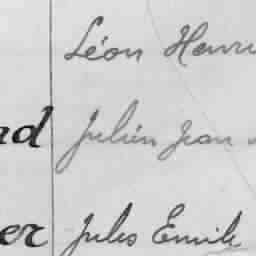 Léon Henri
nd Julien Jean
er Jules Emile